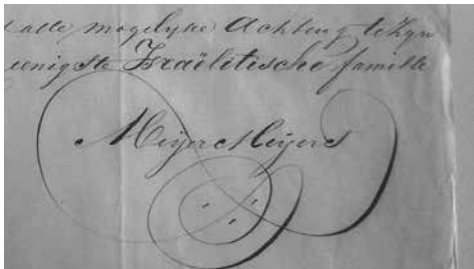 alle mogelyke Achting te Zyn
eenigste Israëlitische familie
Meijer Meijers